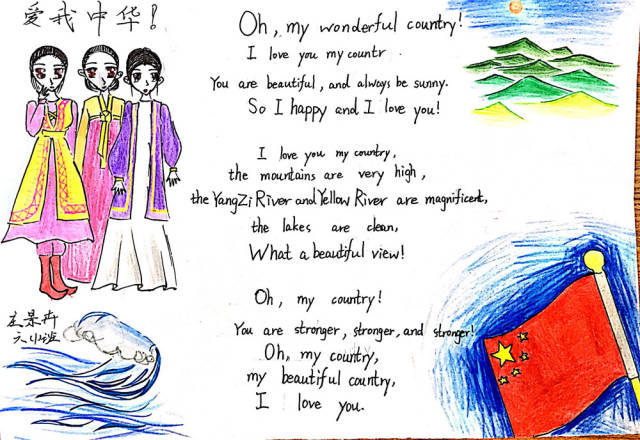 爱我中华!
Oh, my wonderful country!
I love you my countr.
You are beautiful, and always be sunny.
So I happy and I love you!
I love you my country,
the mountains are very high,
the YangZi River and Yellow River are magnificent,
the lakes are clean,
What a beautiful view!
Oh, my country!
You are stronger, stronger, and stronger!
Oh, my country,
my beautiful country,
I love you.